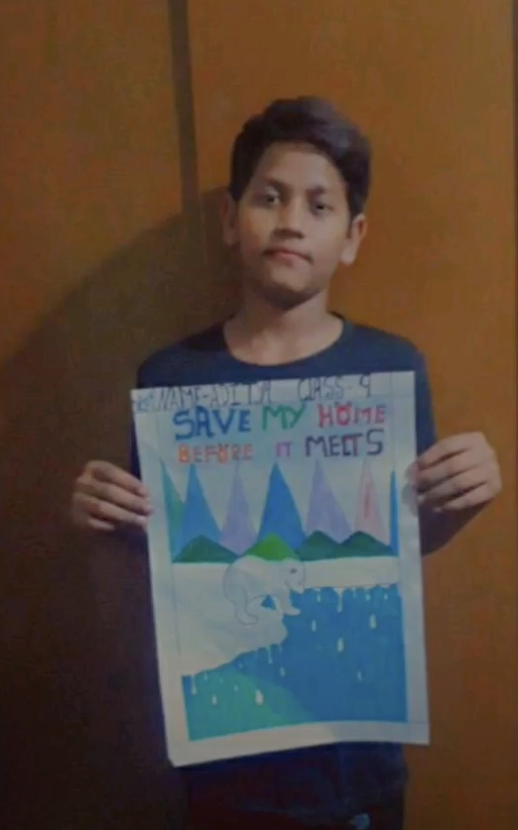 NAME-ADITYA CLASS-9
SAVE MY HOME
BEFORE IT MELTS